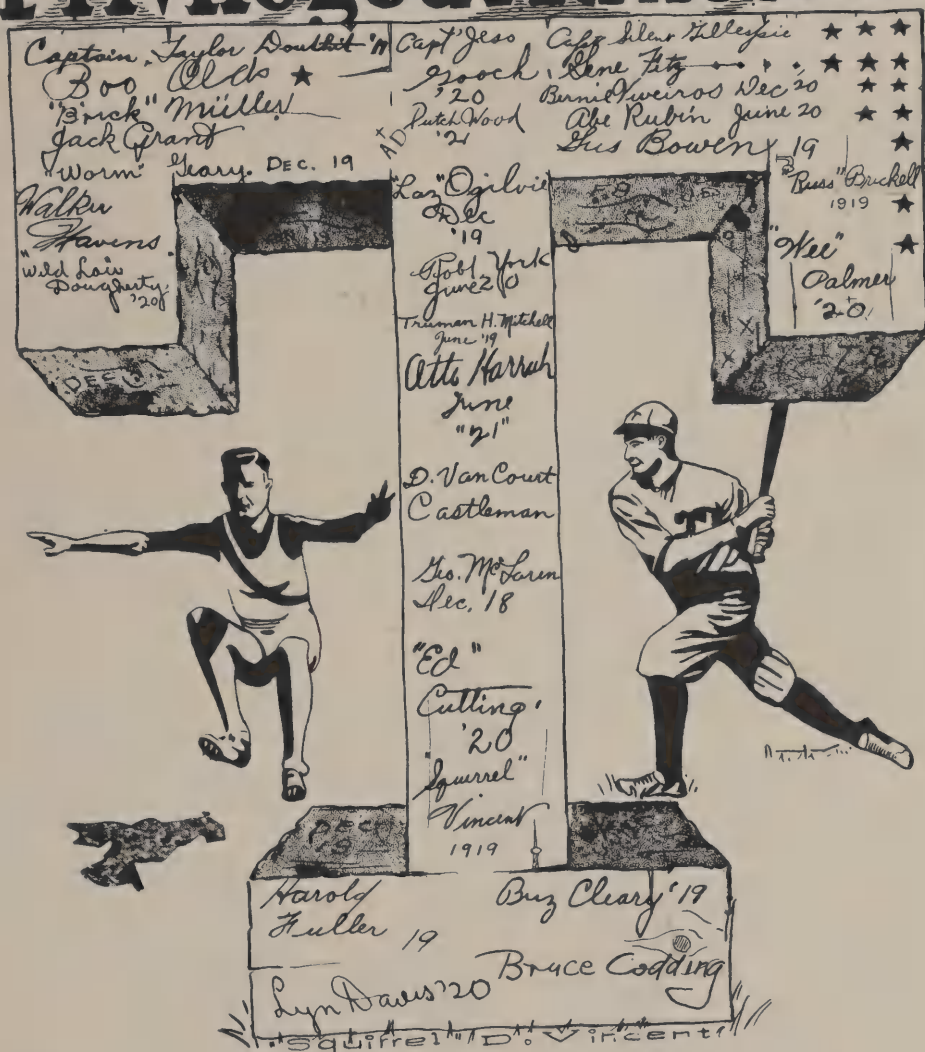 Captain. Taylor Douthit '19
Boo Olds
"Brick" Müller
Jack Grant
"Worm" Geary. DEC. 19
Walker
Havens
"Wild Lois
Dougherty
'20
Capt Jess
Gooch
'20
Dutch Wood
'21
"Laz" Ogilvie
Dec
'19
Robt York
June 20
Truman H. Mitchell
June '19
Otto Harrah
June
"21"
D. Van Court
Castleman
Geo. McLaren
Dec. '18
"Ed"
Cutting.
'20
"Squirrel"
Vincent
1919
Capt Silent Gillespie
Gene Fitz
Bernie Viveiros Dec '20
Abe Rubin June 20
Gus Bowen 19
"Russ" Brickell
1919
"Wee"
Palmer
'20
DEC
T
T
DEC
Harold
Fuller 19
Buz Cleary '19
Bruce Codding
Lyn Davis '20
"Squirrel" D. Vincent